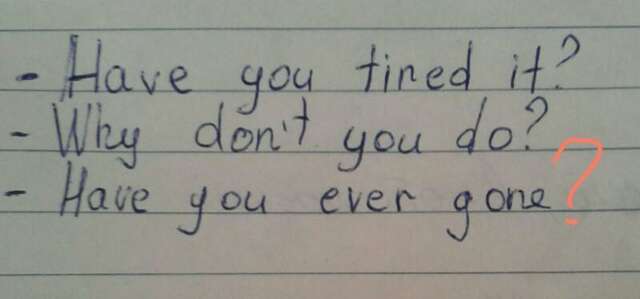 - Have you tired it?
- Why don't you do?
- Have you ever gone?